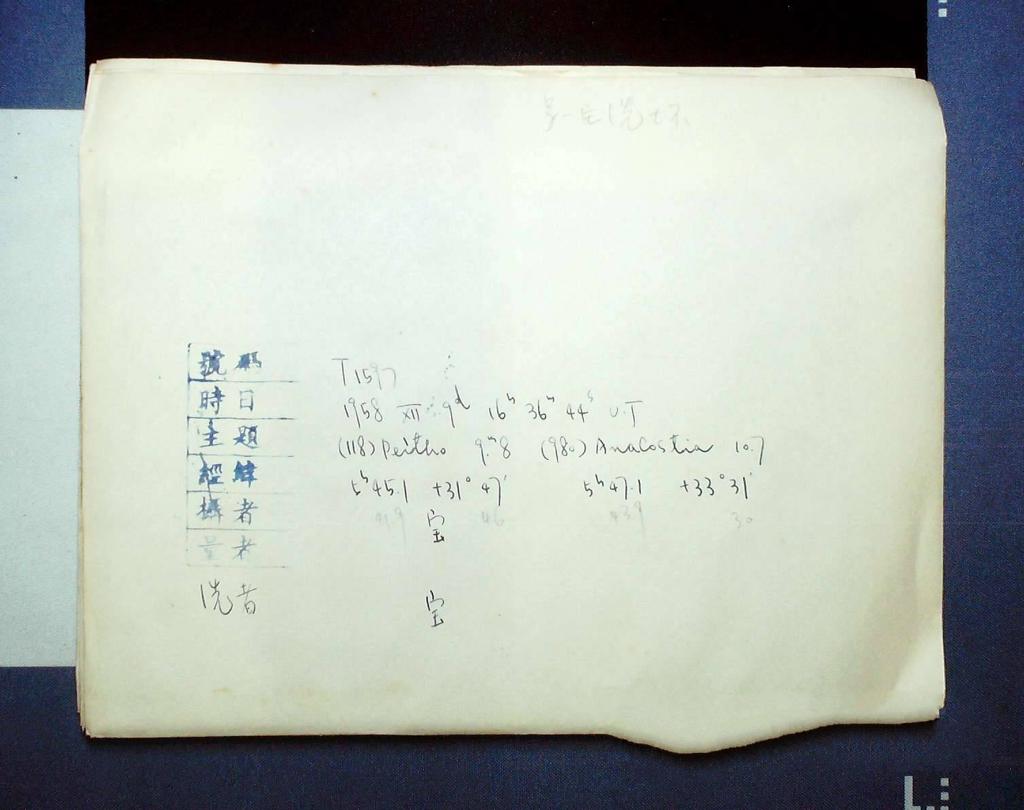 號碼 T1597
時日 1958 XII 9ᵈ 16ʰ 36ᵐ 44ˢ U.T
主題 (118) Peitho 9.ᵐ8 (980) Anacostia 10.7
經緯 5ʰ45.1 +31°47' 5ʰ47.1 +33°31'
攝者 宝
46 43.9 30
量者
洗者 宝